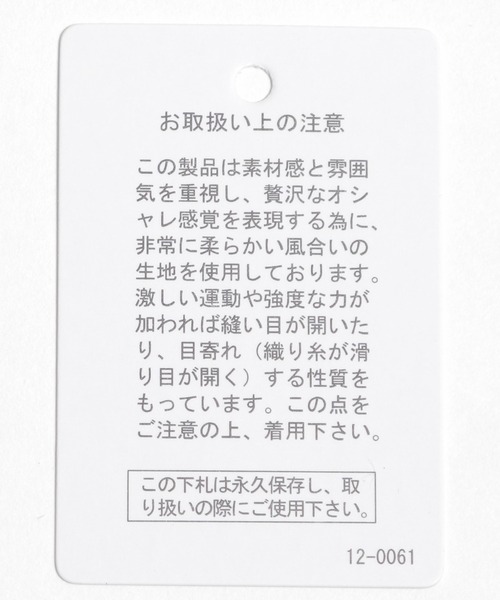 お取扱い上の注意
この製品は素材感と雰囲
気を重視し、贅沢なオシ
ャレ感覚を表現する為に、
非常に柔らかい風合いの
生地を使用しております。
激しい運動や強度な力が
加われば縫い目が開いた
り、目寄れ（織り糸が滑
り目が開く）する性質を
もっています。この点を
ご注意の上、着用下さい。
この下札は永久保存し、取
り扱いの際にご使用下さい。
12-0061